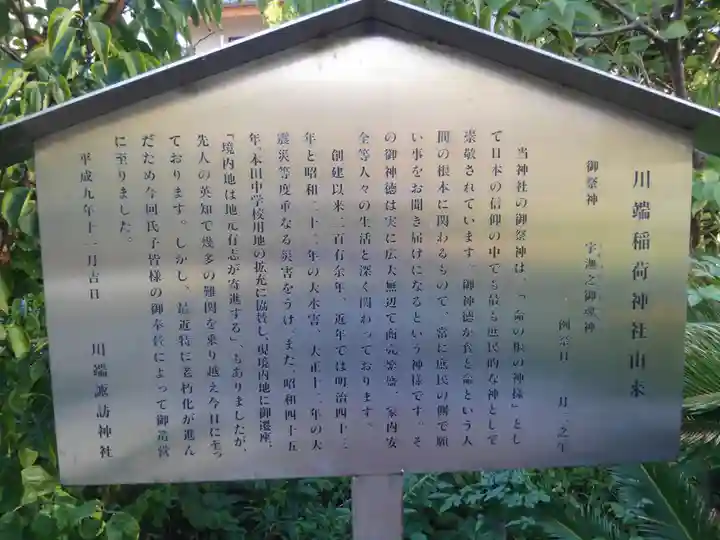 川端稲荷神社由来
御祭神 宇迦之御魂神
例祭日 二月二之午
当神社の御祭神は、「命の根の神様」とし
て日本の信仰の中でも最も庶民的な神として
崇敬されています。御神徳が食と命という人
間の根本に関わるもので、常に庶民の側で願
い事をお聞き届けになるという神様です。そ
の御神徳は実に広大無辺で商売繁盛、家内安
全等人々の生活と深く関わっております。
創建以来二百有余年、近年では明治四十三
年と昭和二十二年の大水害、大正十二年の大
震災等度重なる災害をうけ、また、昭和四十五
年、本田中学校用地の拡充に協賛し、現境内地に御遷座、
「境内地は地元有志が寄進する」、もありましたが、
先人の英知で幾多の難関を乗り越え今日に至っ
ております。しかし、最近特に老朽化が進ん
だため今回氏子皆様の御奉賛によって御造営
に至りました。
平成九年十一月吉日
川端諏訪神社